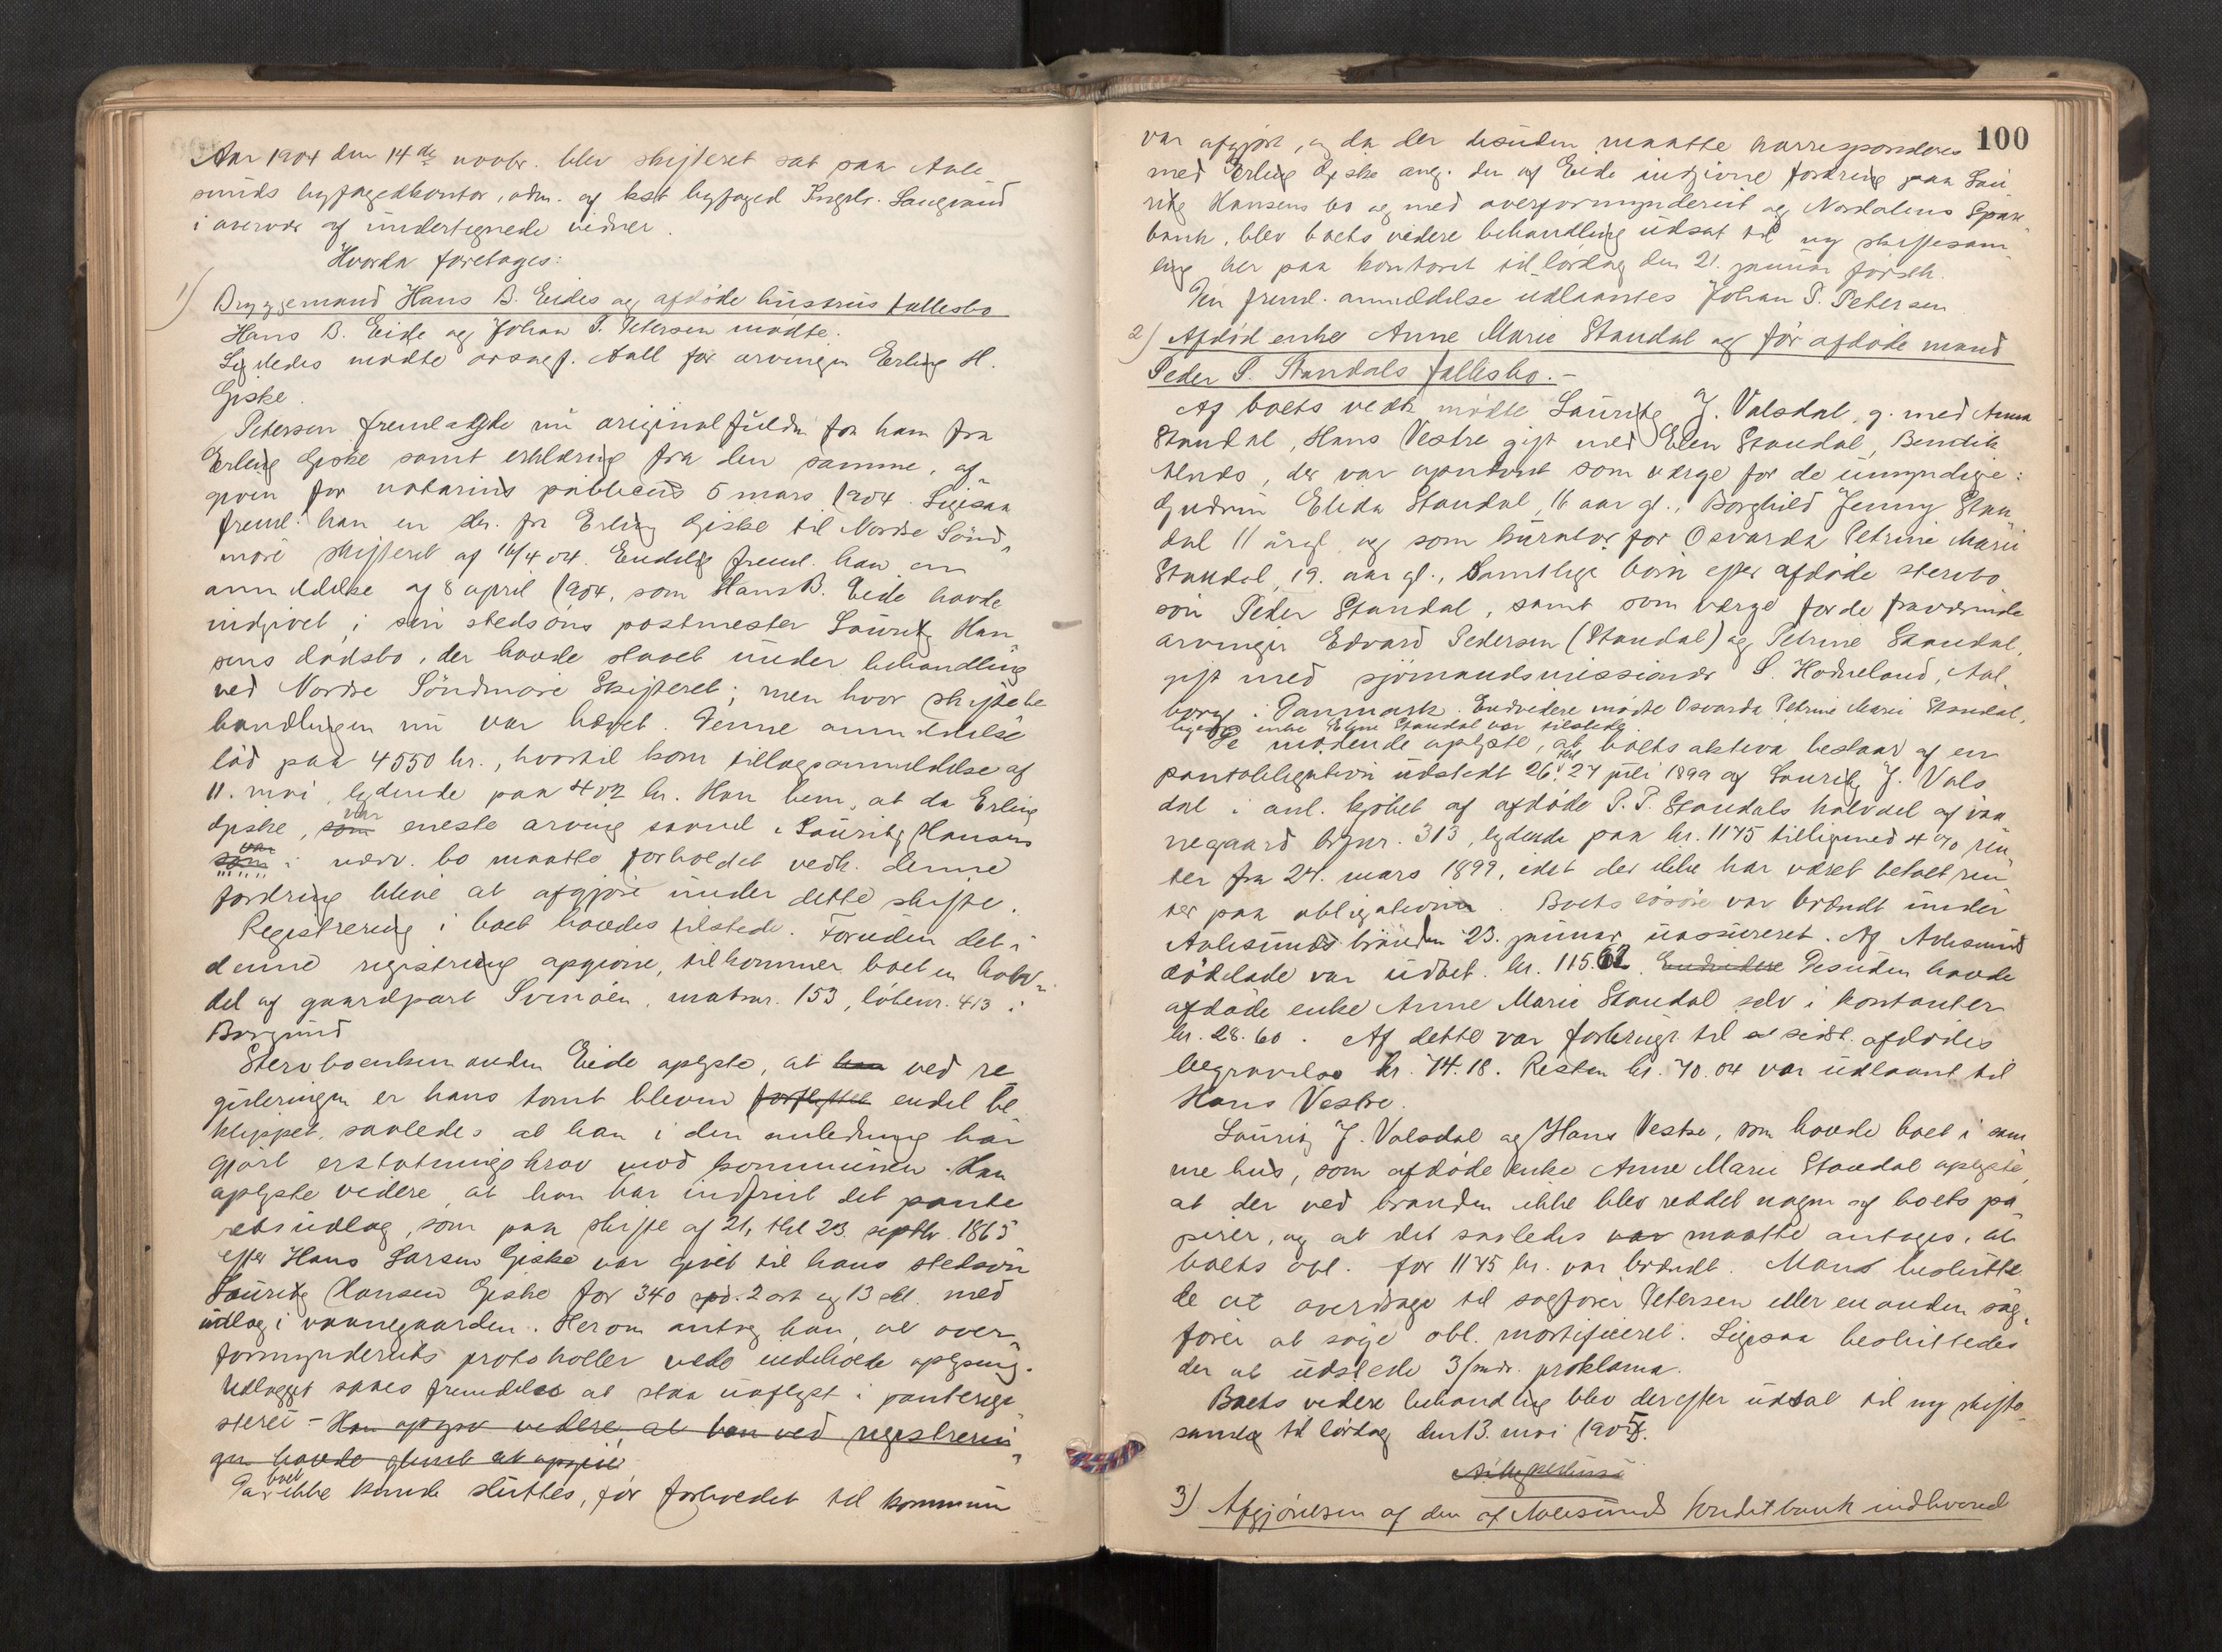 Aar 1904 den 14de novbr. blev skifteret sat paa Aale
sunds byfogedkontor, adm. af kst byfoged Ingelr. Langeland
i overvær af undertegnede vidner.
Hvorda foretoges:
1) Bryggemand Hans B. Eides og afdøde hustrus fællesbo
Hans B. Eide og Johan P. Petersen mødte.
Ligeledes mødte ovsagf. Aall for arvingen Erling H.
Giske.
Petersen fremlagde nu original fuldm for ham fra
Erling Giske samt erklæring fra den samme, af
given for notarius publicus 5 mars 1904. Ligesaa
freml. han en skr. fra Erling Giske til Nordre Sönd-
möre skifteret af 16/4 04. Endelig freml. han en
anmeldelse af 8 april 1904, som Hans B. Eide havde
indgivet i sin stedsöns postmester Lauritz Han
sens dødsbo, der havde staaet under behandling
ved Nordre Söndmöre Skifteret; men hvor skiftebe
handlingen nu var hævet. Denne anmeldelse
löd paa 4550 kr., hvortil kom tillægsanmeldelse af
11. mai, lydende paa 402 kr. Han bem. at da Erling
Giske, som var eneste arving saavel i Lauritz Hansens
som i nærv. bo maatte forholdet vedk. denne
fordring blive at afgjöre under dette skifte.
Registrering i boet havdes tilstede. Foruden det i
denne registrering opgivne, tilkommer boet en halv-
del af gaardpart Svinöen, matrnr. 153, löbenr. 413 i
Borgund
Stervboenkemanden Eide oplyste, at han ved re
guleringen er hans tomt bleven forflyttet endel be
klippet, saaledes at han i den anledning har
gjort erstatningskrav mod kommunen. Han
oplyste videre, at han har indfriet det pante
retsudlæg, som paa skifte af 21, til 23. septbr. 1865
efter Hans Larsen Giske var givet til hans stedsön
Lauritz Hansen Giske for 340 spd. 2 ort og 13 skl. med
udlæg i vaanegaarden. Herom antog han, at over
formynderiets protokoller vilde indeholde oplysning.
Udlægget sees fremdeles at staa uaflyst i panteregi
steret - Han oplyste videre, at han ved registrerin
gen havde glemt at opgive
Da boet ikke kunde sluttes, för forholdet til kommun
100
var afgjort, og da der desuden maatte korresponderes
med Erling Giske ang. den af Eide indgivne fordring paa Lau
ritz Hansens bo og med overformynderiet og Nordalens Spare
bank, blev boets videre behandling udsat til ny skiftesam
ling her paa kontoret til lördag den 21. januar förstk.
Den freml. anmeldelse udlaantes Johan P. Petersen
2) Afdød enke Anne Marie Standal og för afdøde mand
Peder P. Standals fællesbo.-
Af boets vedk mødte Lauritz J. Valsdal, g. med Anna
Standal, Hans Vestre gift med Elen Standal, Bendik
, der var opnævnt som værge for de umyndige:
Gudrun Elida Standal, 16 aar gl., Borghild Jenny Stan
dal 11 aar gl. og som kurator for Osvarda Petrine Marie
Standal, 19. aar gl., Samtlige börn efter afdøde stervbo
sön Peder Standal, samt som værge for de fraværende
arvinger Edvard Pedersen (Standal) og Petrine Standal,
gift med sjömandsmissionær S. Hodneland, Aal
borg i Danmark. Endvidere mödte Osvarda Petrine Marie Standal,
ligesom enke Eline Standal var tilstede.
De mödende oplyste, at boets aktiva bestaar af en
pantobligation udstedt 26. til 27 juli 1899 af Lauritz J. Vals
dal i anl. kjöbet af afdøde P. P. Standals halvdel af vaa
negaard bynr. 313, lydende paa kr. 1175 tilligemed 4% ren
ter fra 24. mars 1899, idet der ikke har været betalt ren
ter paa obligationen. Boets lösöre var brændt under
Aalesunds branden 23. januar uassureret. Af Aalesund
dödslade var udbet. kr. 115.62. Endvidere Desuden havde
afdøde enke Anne Marie Standal selv i kontanter
kr. 28.60. Af dette var forbrugt til sidst. afdødes
begravelse kr. 74.18. Resten kr. 70.04 var udlaant til
Hans Vestre.
Lauritz J. Valsdal og Hans Vestre, som havde boet i sam
me hus, som afdøde enke Anne Marie Standal oplyste,
at der ved branden ikke blev reddet nogen af boets pa
pirer, og at det saaledes var maatte antages, at
boets obl. for 1175 kr. var brændt. Man beslutte
de at overdrage til sagförer Petersen eller en anden sag
förer at söge obl. mortificeret. Ligesaa besluttedes
der at udstede 3/mdr. proklama.
Boets videre behandling blev derefter udsat til ny skifte
samling til lördag den 13. mai 1905.
3) Afgjörelsen af den af Aalesunds Kreditbank indleverede